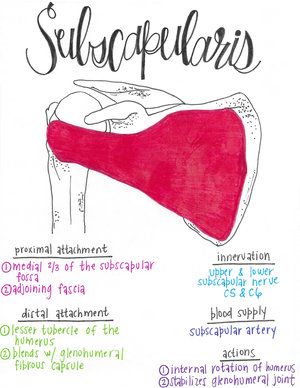 Subscapularis
proximal attachment
① medial 2/3 of the subscapular
fossa
② adjoining fascia
distal attachment
① lesser tubercle of the
humerus
② blends w/ glenohumeral
fibrous capsule
innervation
upper & lower
subscapular nerve
C5 & C6
blood supply
subscapular artery
actions
① internal rotation of humerus
② stabilize glenohumeral joint